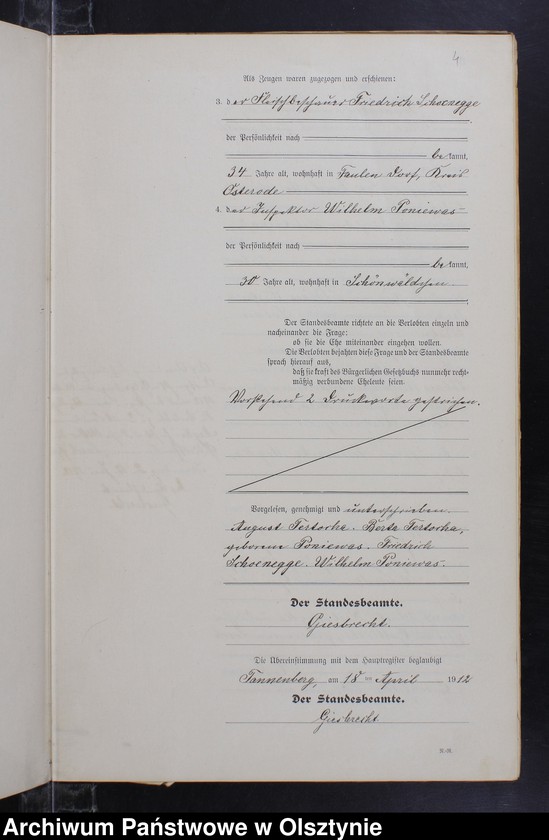 4
Als Zeugen waren zugezogen und erschienen:
3. der Fleischbeschauer Friedrich Schoenegge
der Persönlichkeit nach
be kannt,
34 Jahre alt, wohnhaft in Faulen Dorf, Kreis
Osterode
4. der Inspektor Wilhelm Poniewas
der Persönlichkeit nach
be kannt,
30 Jahre alt, wohnhaft in Schönwäldchen
Der Standesbeamte richtete an die Verlobten einzeln und
nacheinander die Frage:
ob sie die Ehe miteinander eingehen wollen.
Die Verlobten bejahten diese Frage und der Standesbeamte
sprach hierauf aus,
daß sie kraft des Bürgerlichen Gesetzbuchs nunmehr recht-
mäßig verbundene Eheleute seien.
Vorstehend 2 Druckworte gestrichen.
Vorgelesen, genehmigt und unterschrieben.
August Tertocha. Berta Tertocha,
geborene Poniewas. Friedrich
Schoenegge. Wilhelm Poniewas.
Der Standesbeamte.
Giesbrecht.
Die Übereinstimmung mit dem Hauptregister beglaubigt
Tannenberg, am 18 ten April 1912
Der Standesbeamte.
Giesbrecht
Archiwum Państwowe w Olsztynie